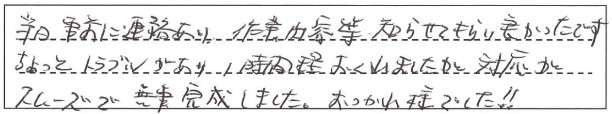 当日事前に連絡あり、作業内容等知らせてもらい良かったです
ちょっとトラブルがあり1時間程おくれましたが対応が
スムーズで無事完成しました。おつかれ様でした!!